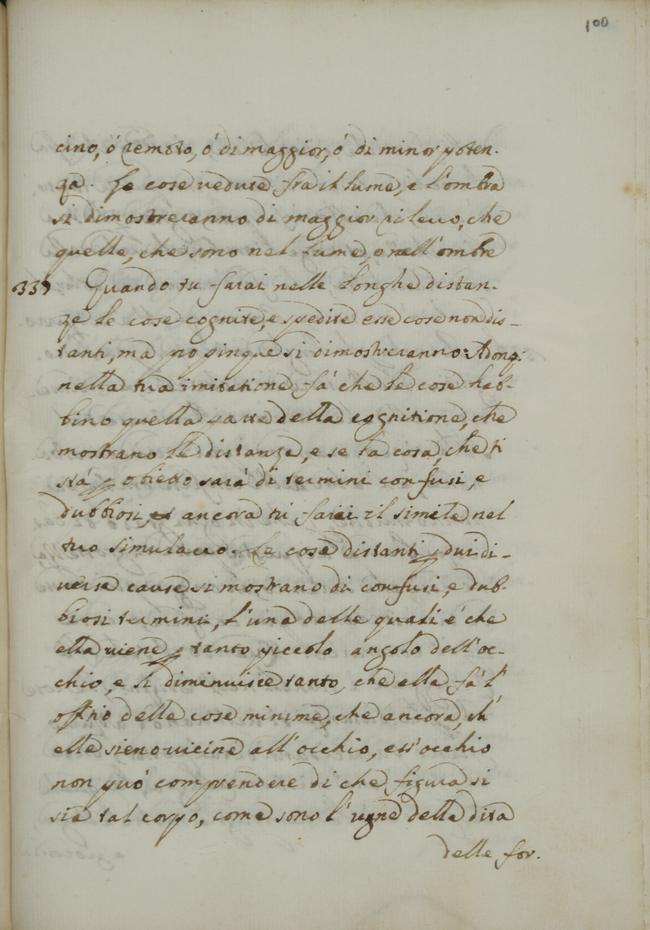 100
cino, ó remoto, ó di maggior, ó di minor poten-
za. Le cose vedute fra il lume, e l'ombra
si dimostreranno di maggior rilevo, che
quelle, che sono nel lume, o nell'ombre
339 Quando tu farai nelle longhe distan-
ze le cose cognite, e spedite esse cose non dis-
tanti, ma propinque si dimostreranno: Adonq:
nella tua imitatione, fá che le cose hab-
bino quella parte della cognitione, che
mostrano le distanze, e se la cosa, che ti
stá p obietto sará di termini confusi, e
dubbiosi, et ancora tu farai il simile nel
tuo simulacro. Le cose distanti p dui di-
verse cause si mostrano di confusi, e dub-
biosi termini, l'una delle quali é che
ella viene p tanto piccolo angolo dell'oc-
chio, e si diminuisce tanto, che ella fá l'
offitio delle cose minime, che ancora, ch'
elle sieno vicine all'occhio, ess'occhio
non puó comprendere di che figura si
sia tal corpo, come sono l'ugne delle dita
delle for.